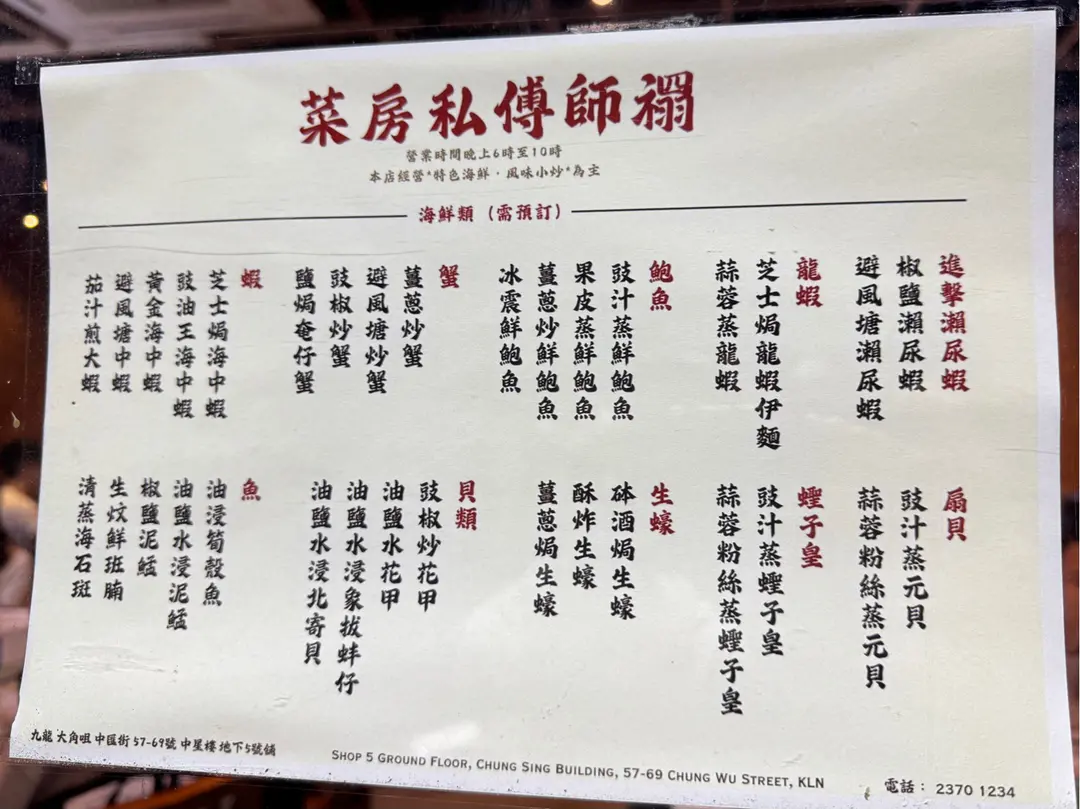 禤師傅私房菜
營業時間晚上6時至10時
本店經營"特色海鮮·風味小炒"為主
海鮮類（需預訂）
進擊瀨尿蝦
椒鹽瀨尿蝦
避風塘瀨尿蝦
龍蝦
芝士焗龍蝦伊麵
蒜蓉蒸龍蝦
鮑魚
豉汁蒸鮮鮑魚
果皮蒸鮮鮑魚
薑蔥炒鮮鮑魚
冰震鮮鮑魚
蟹
薑蔥炒蟹
避風塘炒蟹
豉椒炒蟹
鹽焗奄仔蟹
蝦
芝士焗海中蝦
豉油王海中蝦
黃金海中蝦
避風塘中蝦
茄汁煎大蝦
扇貝
豉汁蒸元貝
蒜蓉粉絲蒸元貝
蟶子皇
豉汁蒸蟶子皇
蒜蓉粉絲蒸蟶子皇
生蠔
砵酒焗生蠔
酥炸生蠔
薑蔥焗生蠔
貝類
豉椒炒花甲
油鹽水花甲
油鹽水浸象拔蚌仔
油鹽水浸北寄貝
魚
油浸筍殼魚
油鹽水浸泥鯭
椒鹽泥鯭
生炆鮮班腩
清蒸海石斑
九龍 大角咀 中匯街 57-69號 中星樓 地下5號舖
SHOP 5 GROUND FLOOR, CHUNG SING BUILDING, 57-69 CHUNG WU STREET, KLN
電話： 2370 1234